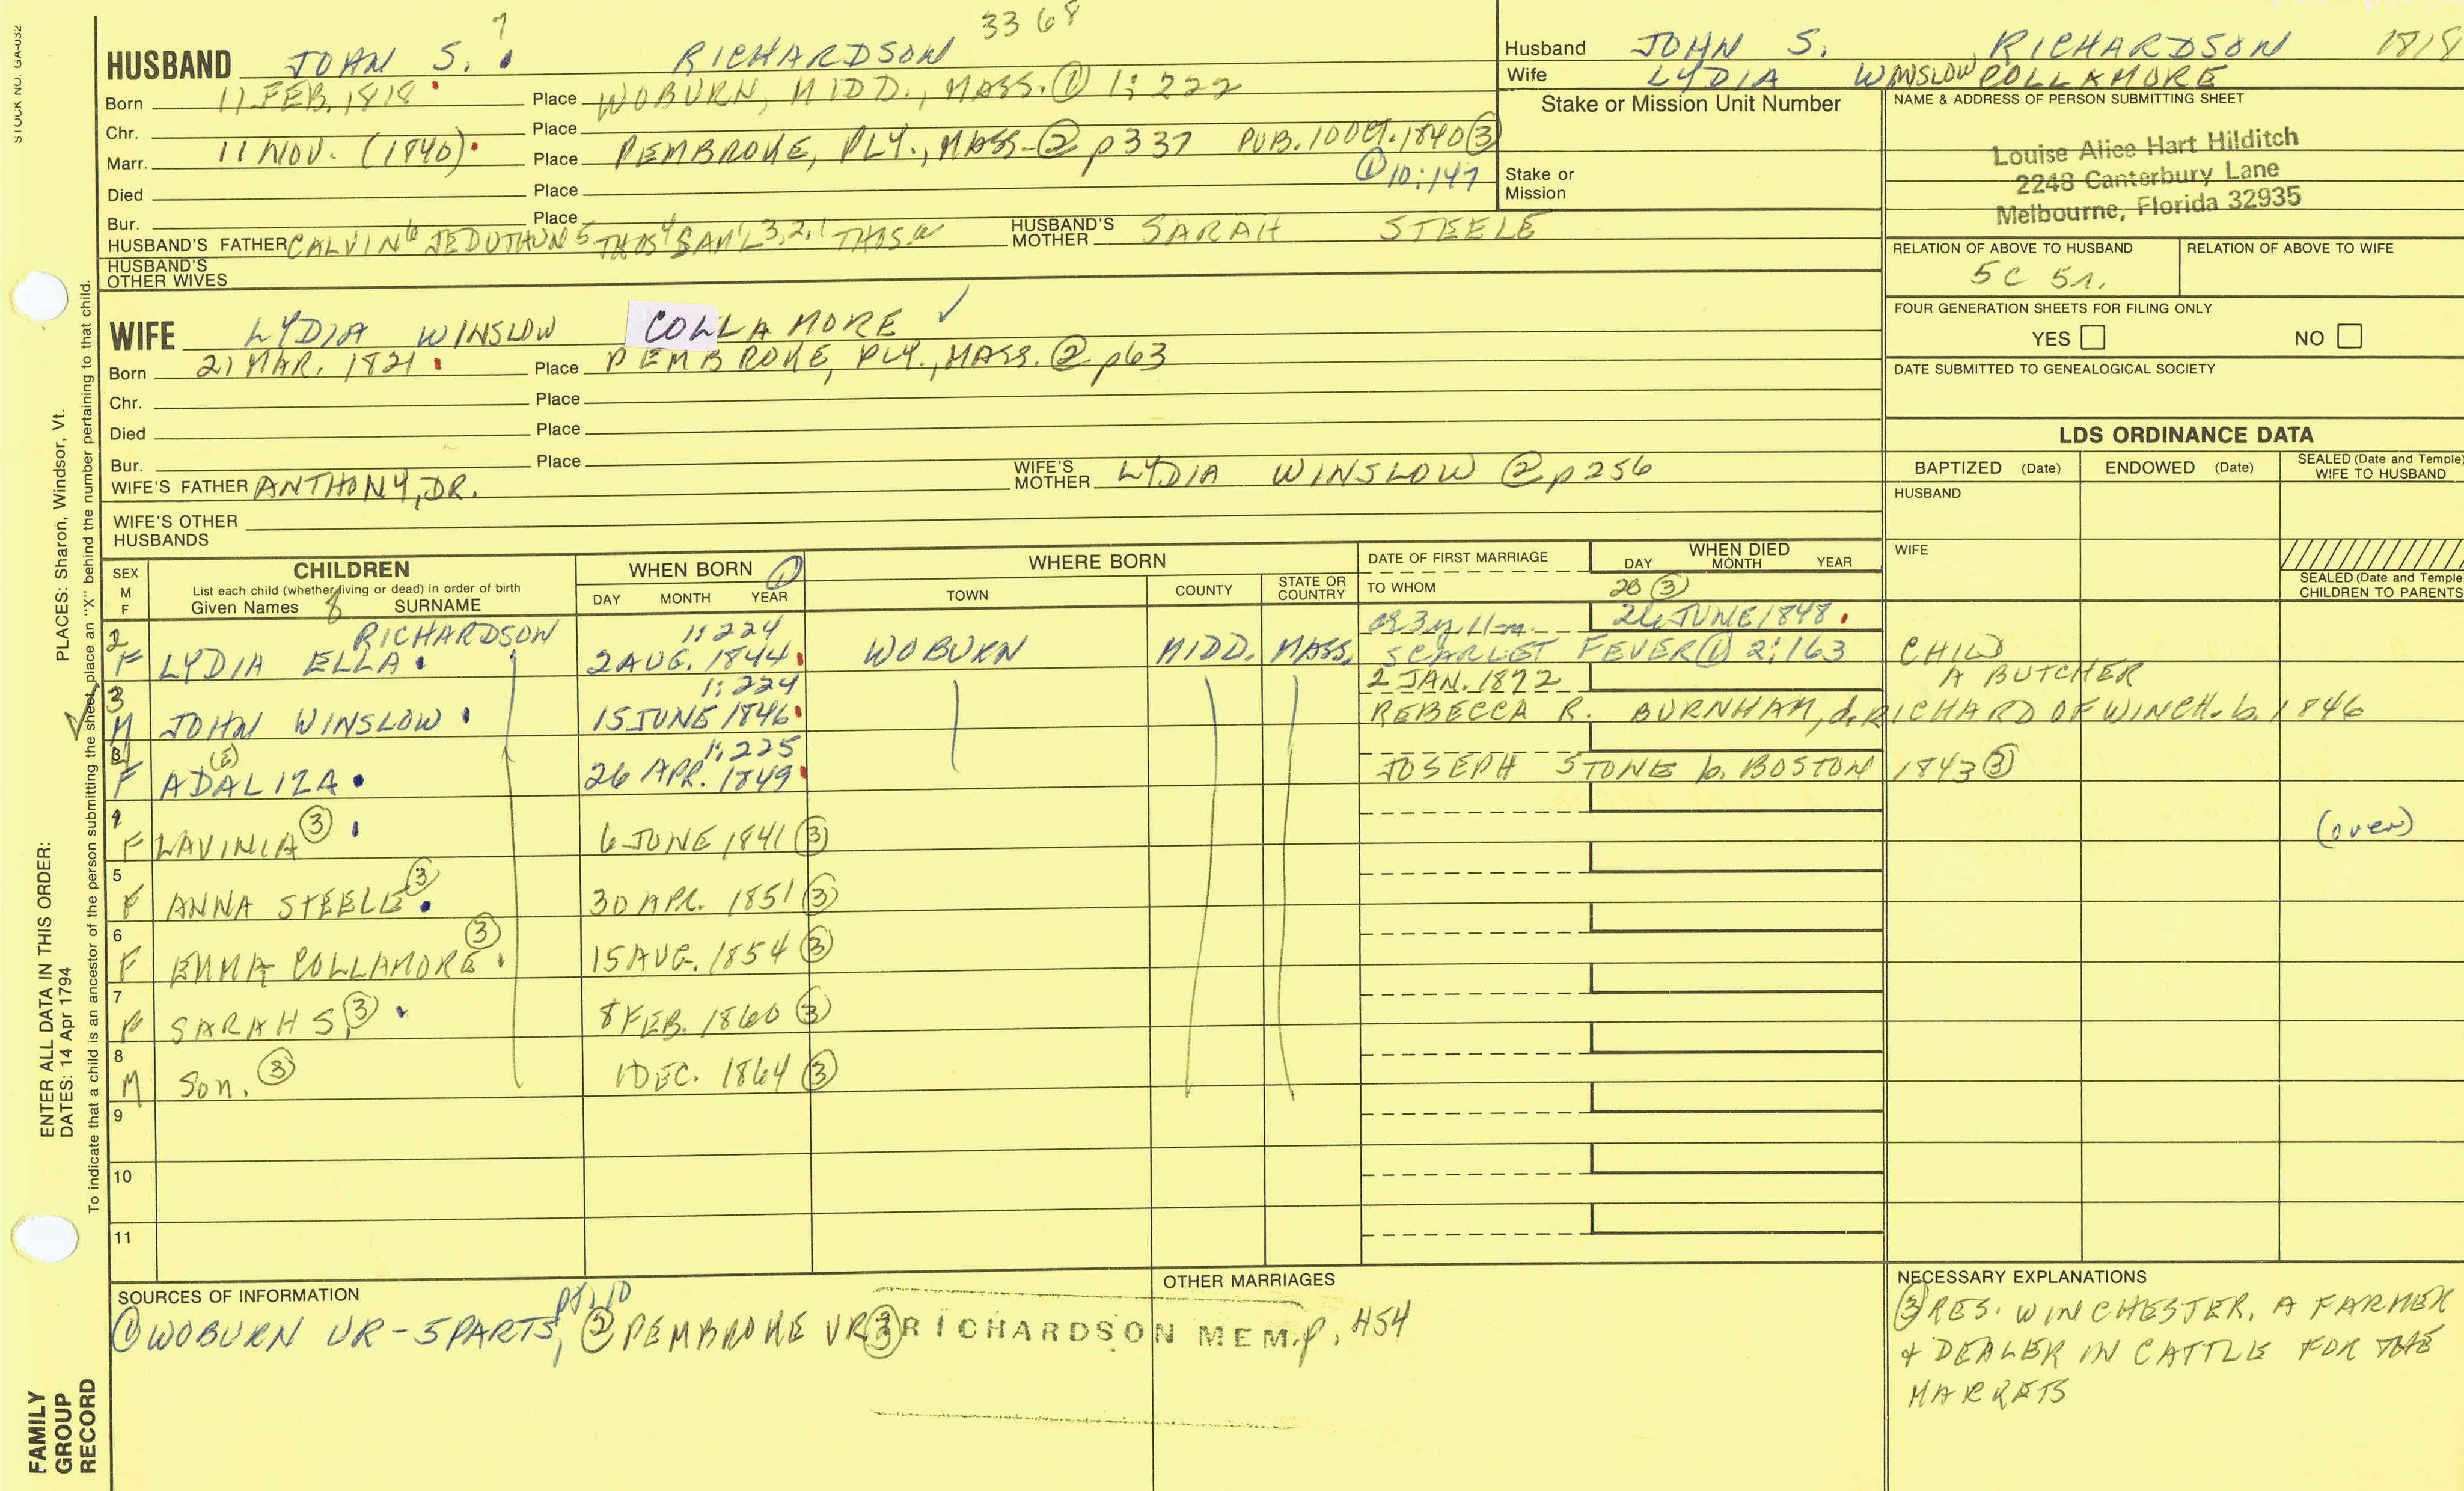 STOCK NO. GA-032
7
3368
HUSBAND JOHN S. RICHARDSON
Born 11 FEB. 1818 Place WOBURN, MIDD., MASS. ① 1:222
Chr. Place
Marr. 11 NOV. (1840) Place PEMBROKE, PLY., MASS. ② p337 PUB. 10 OCT. 1840 ③
① 10:147
Died Place
Bur. Place
HUSBAND'S FATHER CALVIN6 JEDUTHUN5 THOS4 SAM'L3,2,1 THOS
HUSBAND'S MOTHER SARAH STEELE
HUSBAND'S OTHER WIVES
WIFE LYDIA WINSLOW COLLAMORE ✓
Born 21 MAR. 1821 Place PEMBROKE, PLY., MASS. ② p63
Chr. Place
Died Place
Bur. Place
WIFE'S FATHER ANTHONY, DR.
WIFE'S MOTHER LYDIA WINSLOW ② p256
WIFE'S OTHER HUSBANDS
Husband JOHN S. RICHARDSON 1818
Wife LYDIA WINSLOW COLLAMORE
Stake or Mission Unit Number
Stake or Mission
NAME & ADDRESS OF PERSON SUBMITTING SHEET
Louise Alice Hart Hilditch
2248 Canterbury Lane
Melbourne, Florida 32935
RELATION OF ABOVE TO HUSBAND
5C 5r.
RELATION OF ABOVE TO WIFE
FOUR GENERATION SHEETS FOR FILING ONLY
YES NO
DATE SUBMITTED TO GENEALOGICAL SOCIETY
LDS ORDINANCE DATA
BAPTIZED (Date) ENDOWED (Date) SEALED (Date and Temple) WIFE TO HUSBAND
HUSBAND
WIFE
SEALED (Date and Temple) CHILDREN TO PARENTS
SEX M F
CHILDREN
List each child (whether living or dead) in order of birth
Given Names 8 SURNAME
WHEN BORN ①
DAY MONTH YEAR
WHERE BORN
TOWN COUNTY STATE OR COUNTRY
DATE OF FIRST MARRIAGE
TO WHOM
WHEN DIED
DAY MONTH YEAR
28 ③
2 F LYDIA ELLA RICHARDSON 1:224 2 AUG. 1844 WOBURN MIDD. MASS. ae 3y 11m 26 JUNE 1848
SCARLET FEVER ① 2:163 CHILD
3 M JOHN WINSLOW 1:224 15 JUNE 1846 2 JAN. 1872 A BUTCHER
REBECCA R. BURNHAM, d. RICHARD OF WINCH. b. 1846
F ADALIZA (E) 1:225 26 APR. 1849 JOSEPH STONE b. BOSTON 1843 ③
1 F LAVINIA ③ 6 JUNE 1841 ③
(over)
5 F ANNA STEELE ③ 30 APR. 1851 ③
6 F EMMA COLLAMORE ③ 15 AUG. 1854 ③
7 F SARAH S. ③ 8 FEB. 1860 ③
8 M Son. ③ 1 DEC. 1864 ③
9
10
11
SOURCES OF INFORMATION
pt. 10
① WOBURN VR - 5 PARTS, ② PEMBROKE VR ③ RICHARDSON MEM. p. 454
OTHER MARRIAGES
NECESSARY EXPLANATIONS
③ RES. WINCHESTER, A FARMER
+ DEALER IN CATTLE FOR THE
MARKETS
PLACES: Sharon, Windsor, Vt.
To indicate that a child is an ancestor of the person submitting the sheet, place an "X" behind the number pertaining to that child.
ENTER ALL DATA IN THIS ORDER:
DATES: 14 Apr 1794
FAMILY
GROUP
RECORD